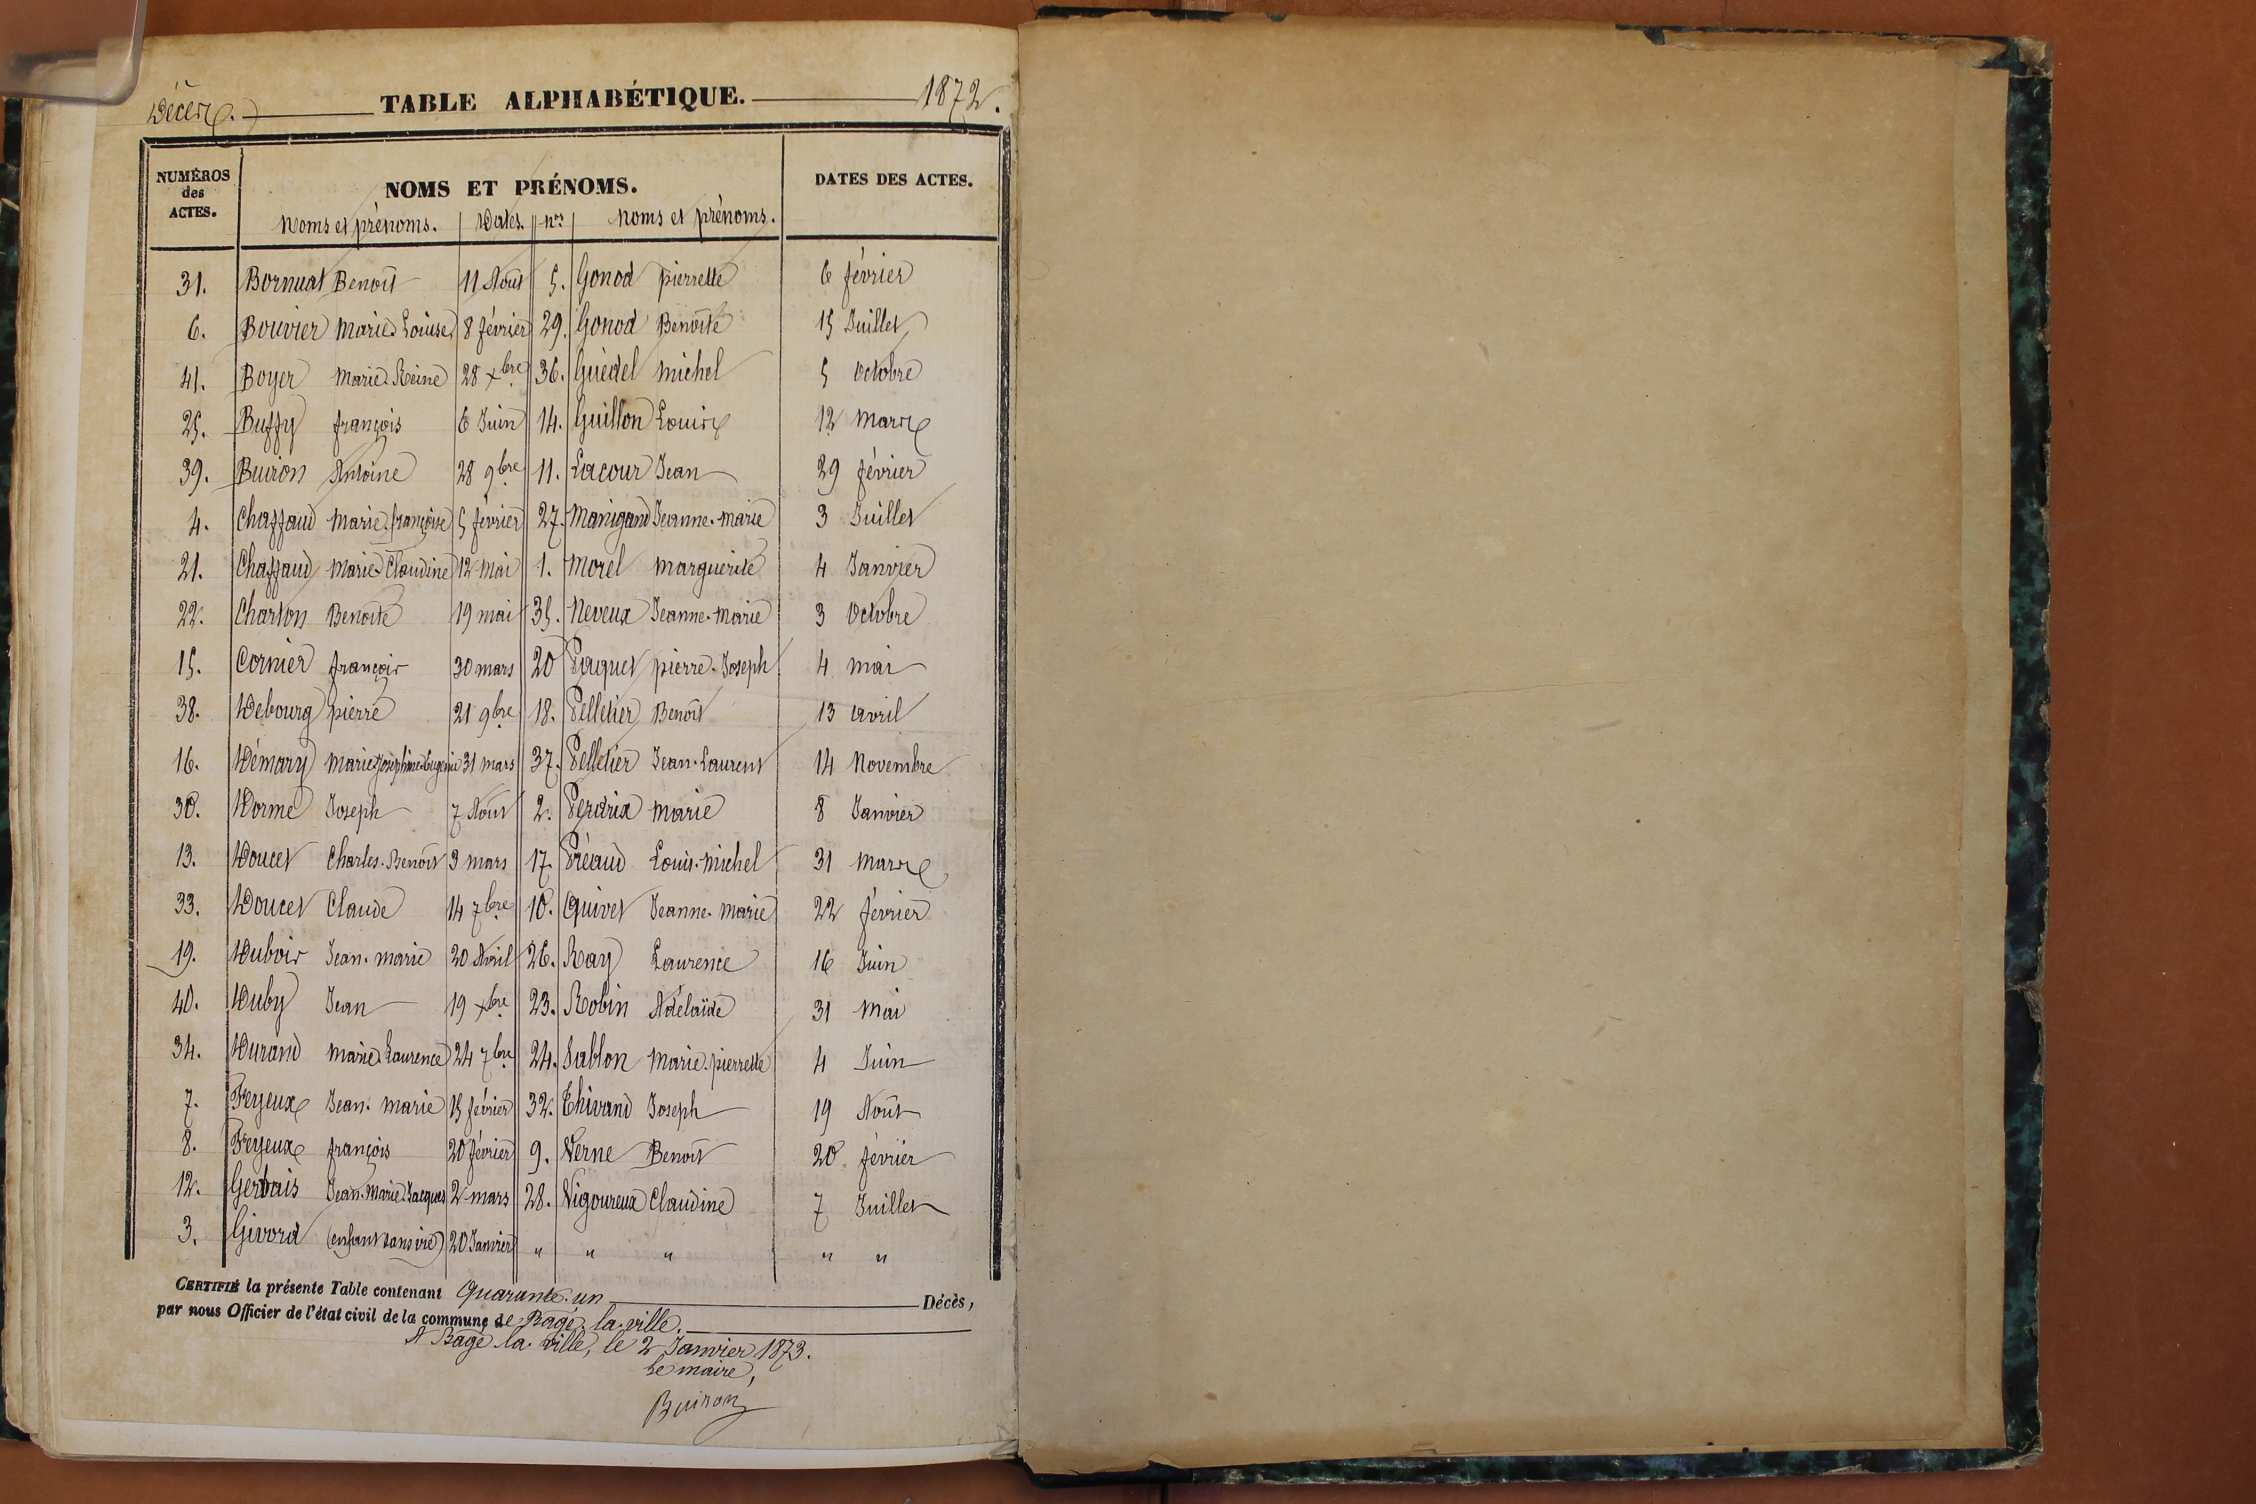 Décès. TABLE ALPHABÉTIQUE. 1872.
NUMÉROS des ACTES. NOMS ET PRÉNOMS. DATES DES ACTES.
Noms et prénoms. Dates. nos Noms et prénoms.
31. Bornuat Benoît 11 Août 5. Gonod pierrette 6 février
6. Bouvier Marie Louise 8 février 29. Gonod Benoîte 15 Juillet
41. Boyer Marie Reine 28 xbre 36. Guédel michel 5 Octobre
25. Buffy françois 6 Juin 14. Guillon Louis 12 Mars
39. Buiron Antoine 28 9bre 11. Lacour Jean 29 février
4. Chaffaud Marie françoise 5 février 27. Manigand Jeanne-marie 3 Juillet
21. Chaffaud Marie Claudine 12 Mai 1. Morel Marguerite 4 Janvier
22. Charton Benoîte 19 mai 35. Neveux Jeanne-Marie 3 Octobre
15. Cornier françois 30 mars 20 Paquet pierre-Joseph 4 mai
38. Debourg pierre 21 9bre 18. Pelletier Benoît 13 avril
16. Démary Marie Joséphine Eugénie 31 mars 37. Pelletier Jean-Laurent 14 Novembre
30. Dorme Joseph 7 Août 2. Perdrix Marie 8 Janvier
13. Doucet Charles-Benoît 3 mars 17. Préaud Louis-Michel 31 Mars
33. Doucet Claude 14 7bre 10. Quivet Jeanne-Marie 22 février
19. Dubois Jean-marie 20 Avril 26. Ray Laurence 16 Juin
40. Duby Jean 19 xbre 23. Robin Adélaïde 31 Mai
34. Durand Marie Laurence 24 7bre 24. Sablon Marie-pierrette 4 Juin
7. Feyeux Jean-marie 15 février 32. Thivand Joseph 19 Août
8. Feyeux françois 20 février 9. Verne Benoît 20 février
12. Gerbais Jean-Marie Jacques 2 mars 28. Vigoureux Claudine 7 Juillet
3. Givord (enfant sans vie) 20 Janvier " " " " "
CERTIFIÉ la présente Table contenant Quarante-un Décès,
par nous Officier de l'état civil de la commune de Bagé-la-ville.
A Bagé-la-ville, le 2 Janvier 1873.
Le maire,
Buiron